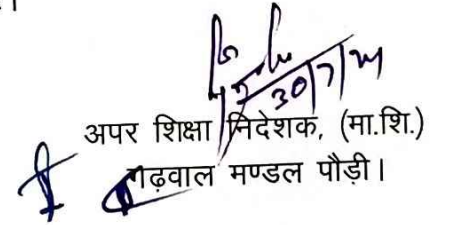 30/7/24
अपर शिक्षा निदेशक, (मा.शि.)
गढ़वाल मण्डल पौड़ी।